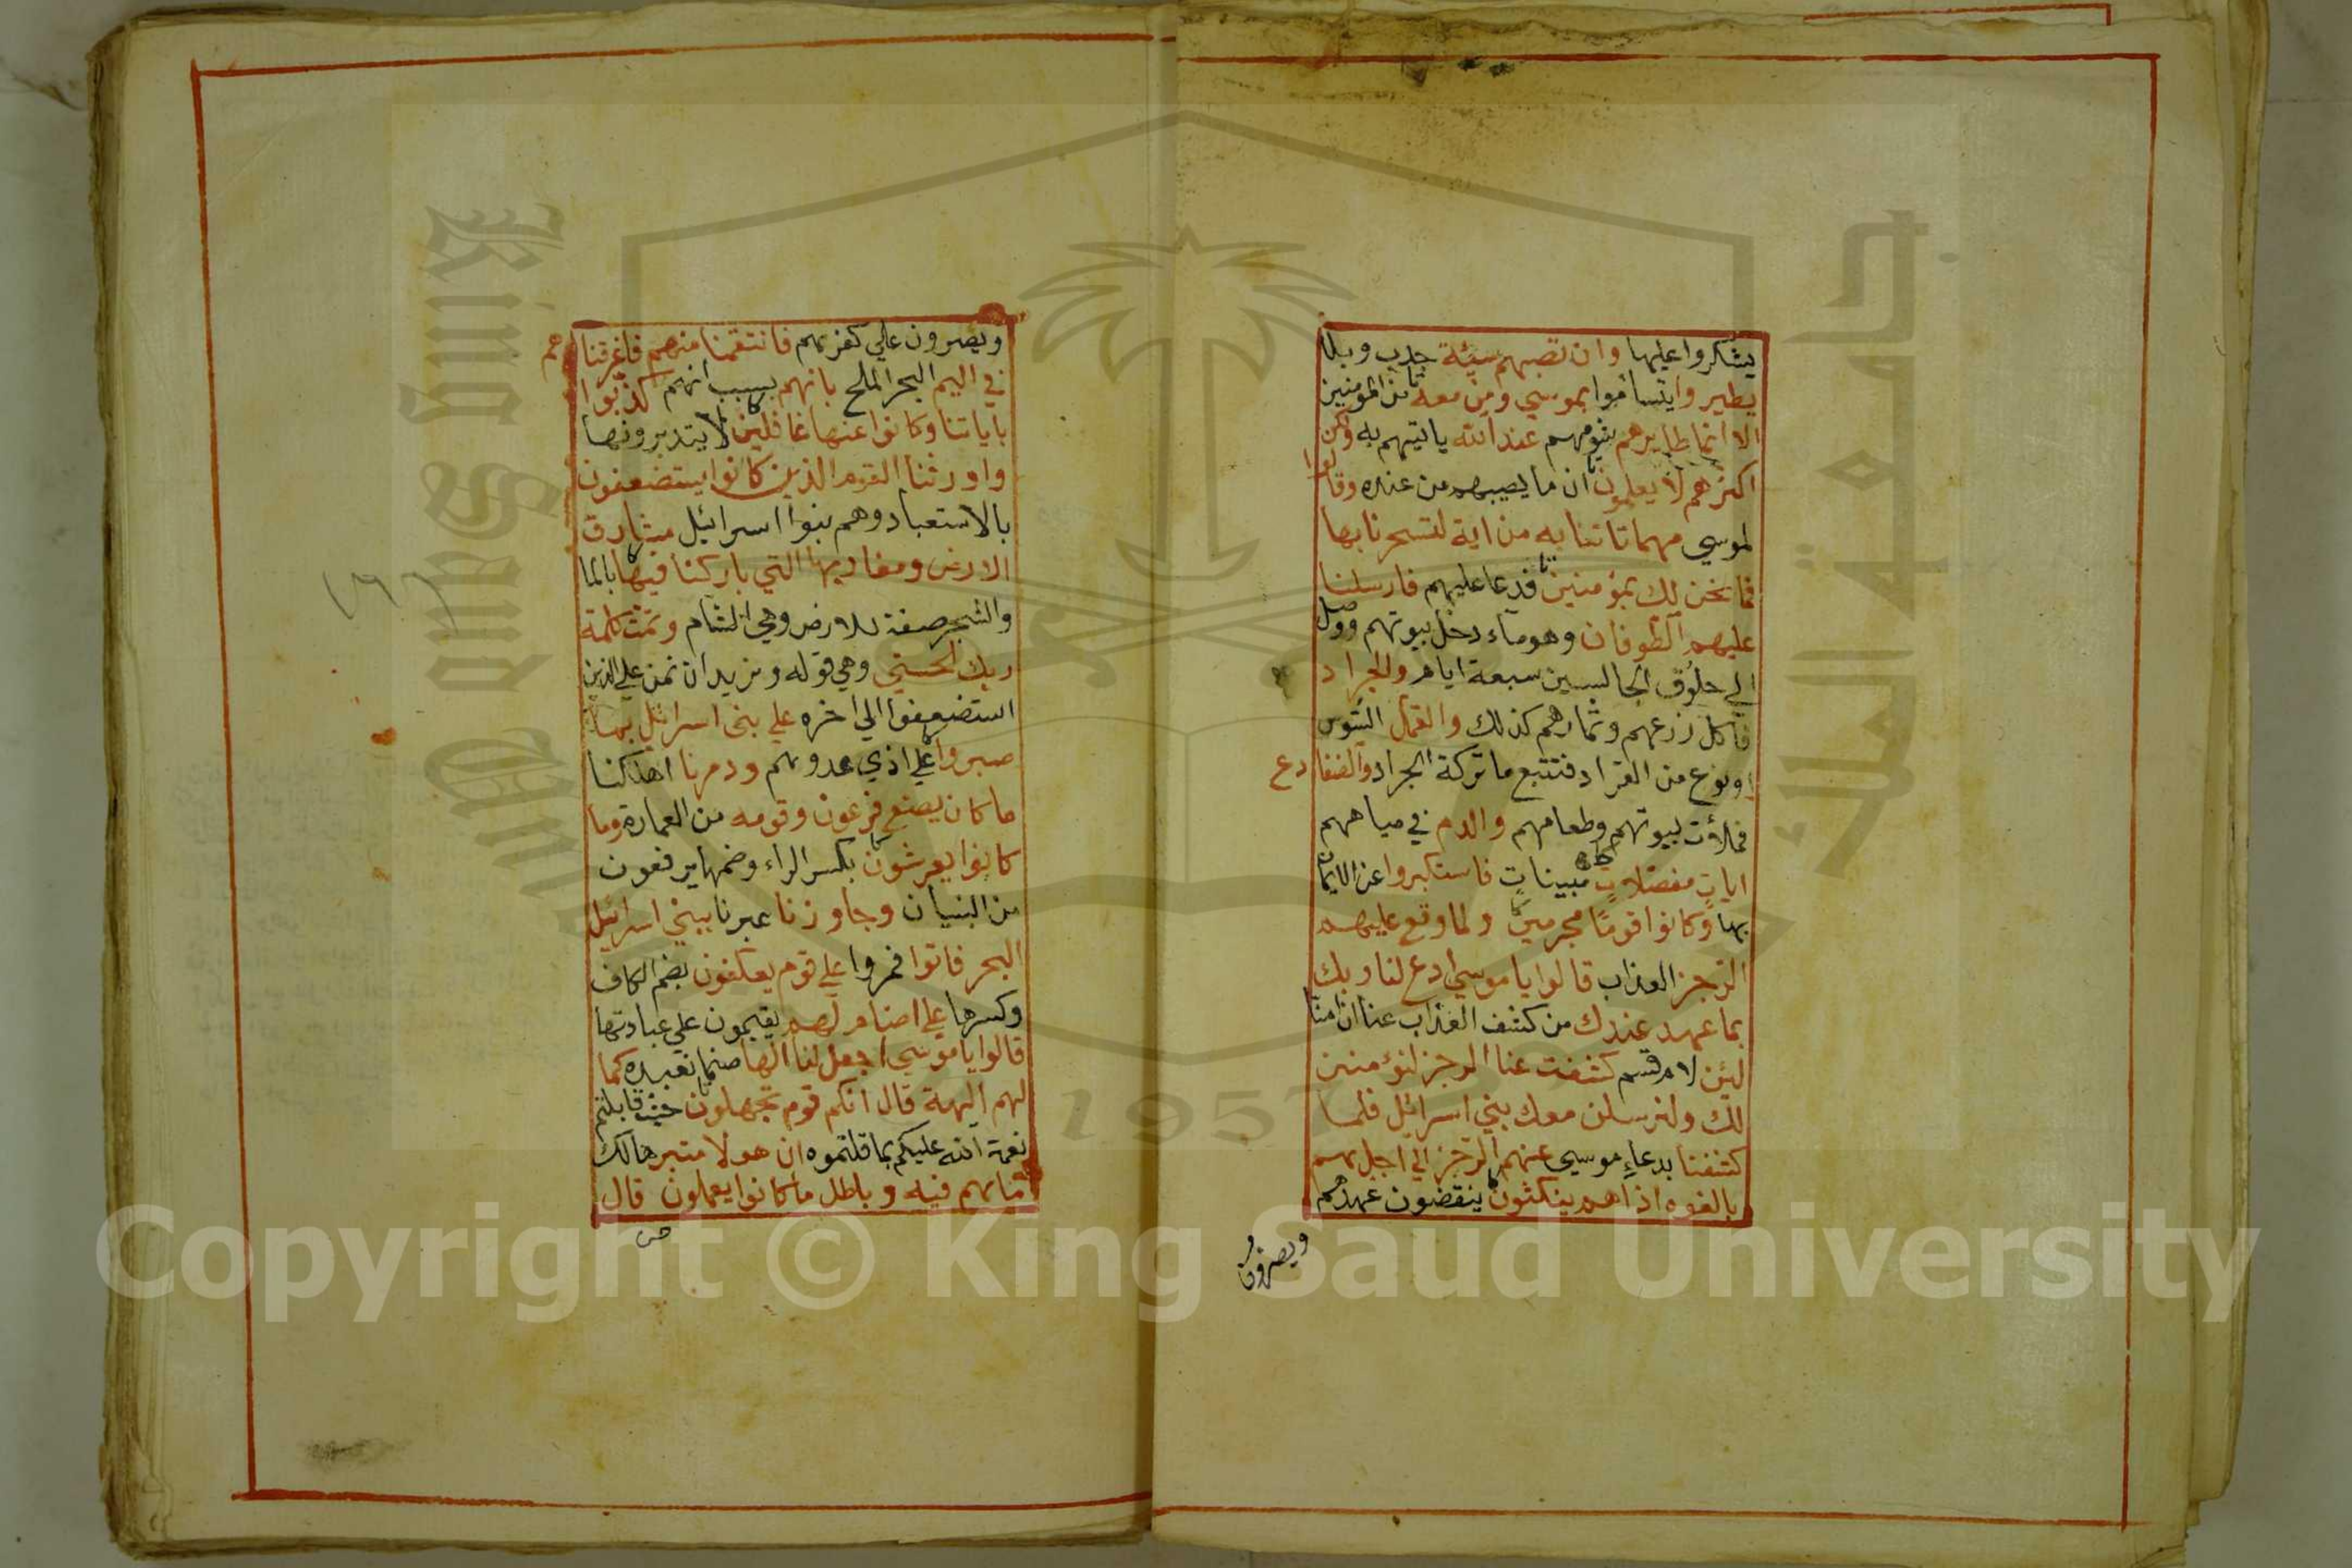 يشكروا عليها وان تصبهم سيئة جدب وبلا
يطيروا يتشاموا بموسي ومن معه من المومنين
الا انما طايرهم شومهم عند الله ياتيهم به ولكن
اكثرهم لا يعلمون ان ما يصيبهم من عنده وقالوا
لموسي مهما تاتنا به من اية لتسحرنا بها
فما نحن لك بمؤمنين فدعا عليهم فارسلنا
عليهم الطوفان وهو ماء دخل بيوتهم ووصل
الي حلوق الجالسين سبعة ايام والجراد
فاكل زرعهم وثمارهم كذلك والقمل السوس
او نوع من القراد فتتبع ما تركة الجراد والضفادع
فملأت بيوتهم وطعامهم والدم في مياههم
ايات مفصلات مبينات فاستكبروا عن الايمان
بها وكانوا قوما مجرمين ولما وقع عليهم
الرجز العذاب قالوا يا موسي ادع لنا ربك
بما عهد عندك من كشف العذاب عنا ان امنا
لئن لام قسم كشفت عنا الرجز لنؤمنن
لك ولنرسلن معك بني اسرائيل فلما
كشفنا بدعاء موسي عنهم الرجز الي اجل هم
بالغوه اذا هم ينكثون ينقضون عهدهم
ويصرون
ويصرون علي كفرهم فانتقمنا منهم فاغرقناهم
في اليم البحر الملح بانهم بسبب انهم كذبوا
باياتنا وكانوا عنها غافلين لا يتدبرونها
واورثنا القوم الذين كانوا يستضعفون
بالاستعباد وهم بنوا اسرائيل مشارق
الارض ومغاربها التي باركنا فيها بالما
والشجر صفة للارض وهي الشام وتمت كلمة
ربك الحسني وهي قوله ونريد ان نمن علي الذين
استضعفوا الي اخره علي بني اسرائيل بما
صبروا علي اذي عدوهم ودمرنا اهلكنا
ما كان يصنع فرعون وقومه من العمارة وما
كانوا يعرشون بكسر الراء وضمها يرفعون
من البنيان وجاوزنا عبرنا ببني اسرائيل
البحر فاتوا فمروا علي قوم يعكفون بضم الكاف
وكسرها علي اصنام لهم يقيمون علي عبادتها
قالوا يا موسي اجعل لنا الها صنما نعبده كما
لهم الهة قال انكم قوم تجهلون حيث قابلتم
نعمة الله عليكم بما قلتموه ان هولا متبر هالك
ما هم فيه وباطل ما كانوا يعملون قال
Copyright © King Saud University
King Saud University
جامعة الملك سعود
1957